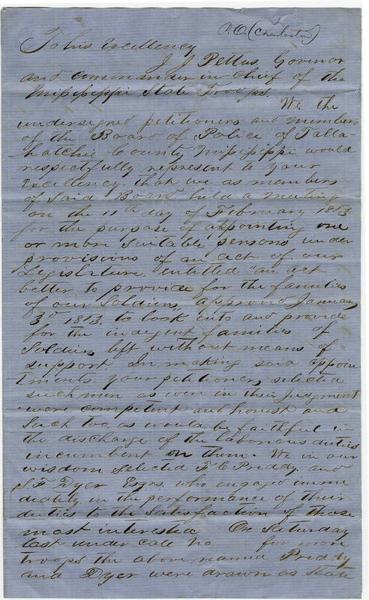 P.O. (Charleston)
To his Excellency
J. J. Pettus, Govinor
and commander in Chief of the
Mississippi State Troops,
We the
undersigned petitioners and members
of the Board of Police of Talla-
hatchie County Mississippi would
respectfully represent to your
Excellency that we as members
of said Board held a meeting
on the 11th day of February 1863
for the purpose of appointing one
or more suitable persons under
provisions of an act of our
Legislature entitled "an act
better to provide for the families
of our Soldiers, approved January
3d 1863, to look into and provide
for the indigent families of
Soldiers left without means of
support. In making said appoin
tments your petitioners selected
such men as were in their judgment
were competent and honest and
such too as would be faithful in
the discharge of the laborious duties
incumbent on them. We in our
wisdom selected F. C. Priddy and
Dyer Esqrs. who engaged imme
diately in the performance of their
duties to the satisfaction of those
most interested. On Saturday
last under call No for more
troops the above named Priddy
and Dyer were drawn as State